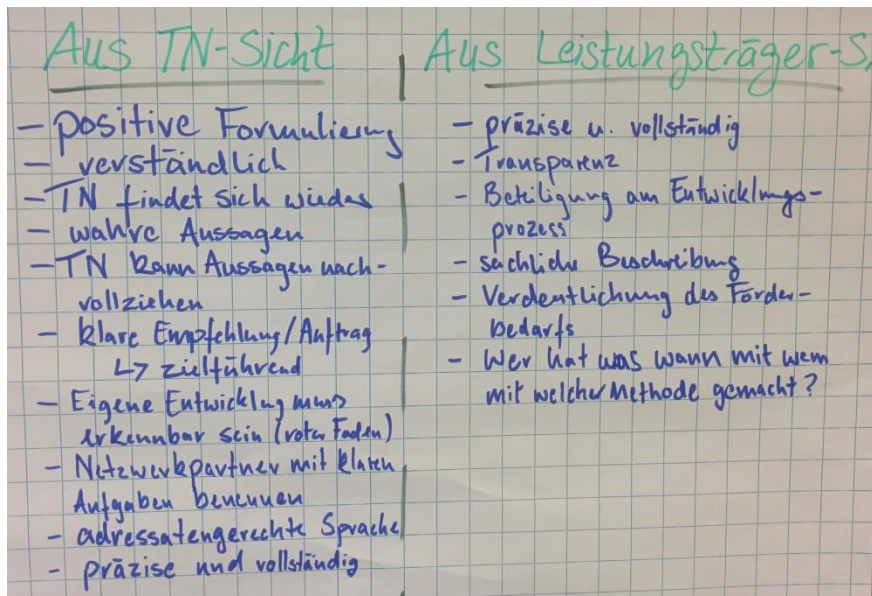 Aus TN-Sicht
- positive Formulierung
- verständlich
- TN findet sich wieder
- wahre Aussagen
- TN kann Aussagen nach-
vollziehen
- klare Empfehlung/Auftrag
↳ zielführend
- Eigene Entwicklung muss
erkennbar sein (roter Faden)
- Netzwerkpartner mit klaren
Aufgaben benennen
- adressatengerechte Sprache
- präzise und vollständig
Aus Leistungsträger-S.
- präzise u. vollständig
- Transparenz
- Beteiligung am Entwicklungs-
prozess
- sachliche Beschreibung
- Verdeutlichung des Förder-
bedarfs
- Wer hat was wann mit wem
mit welcher Methode gemacht?